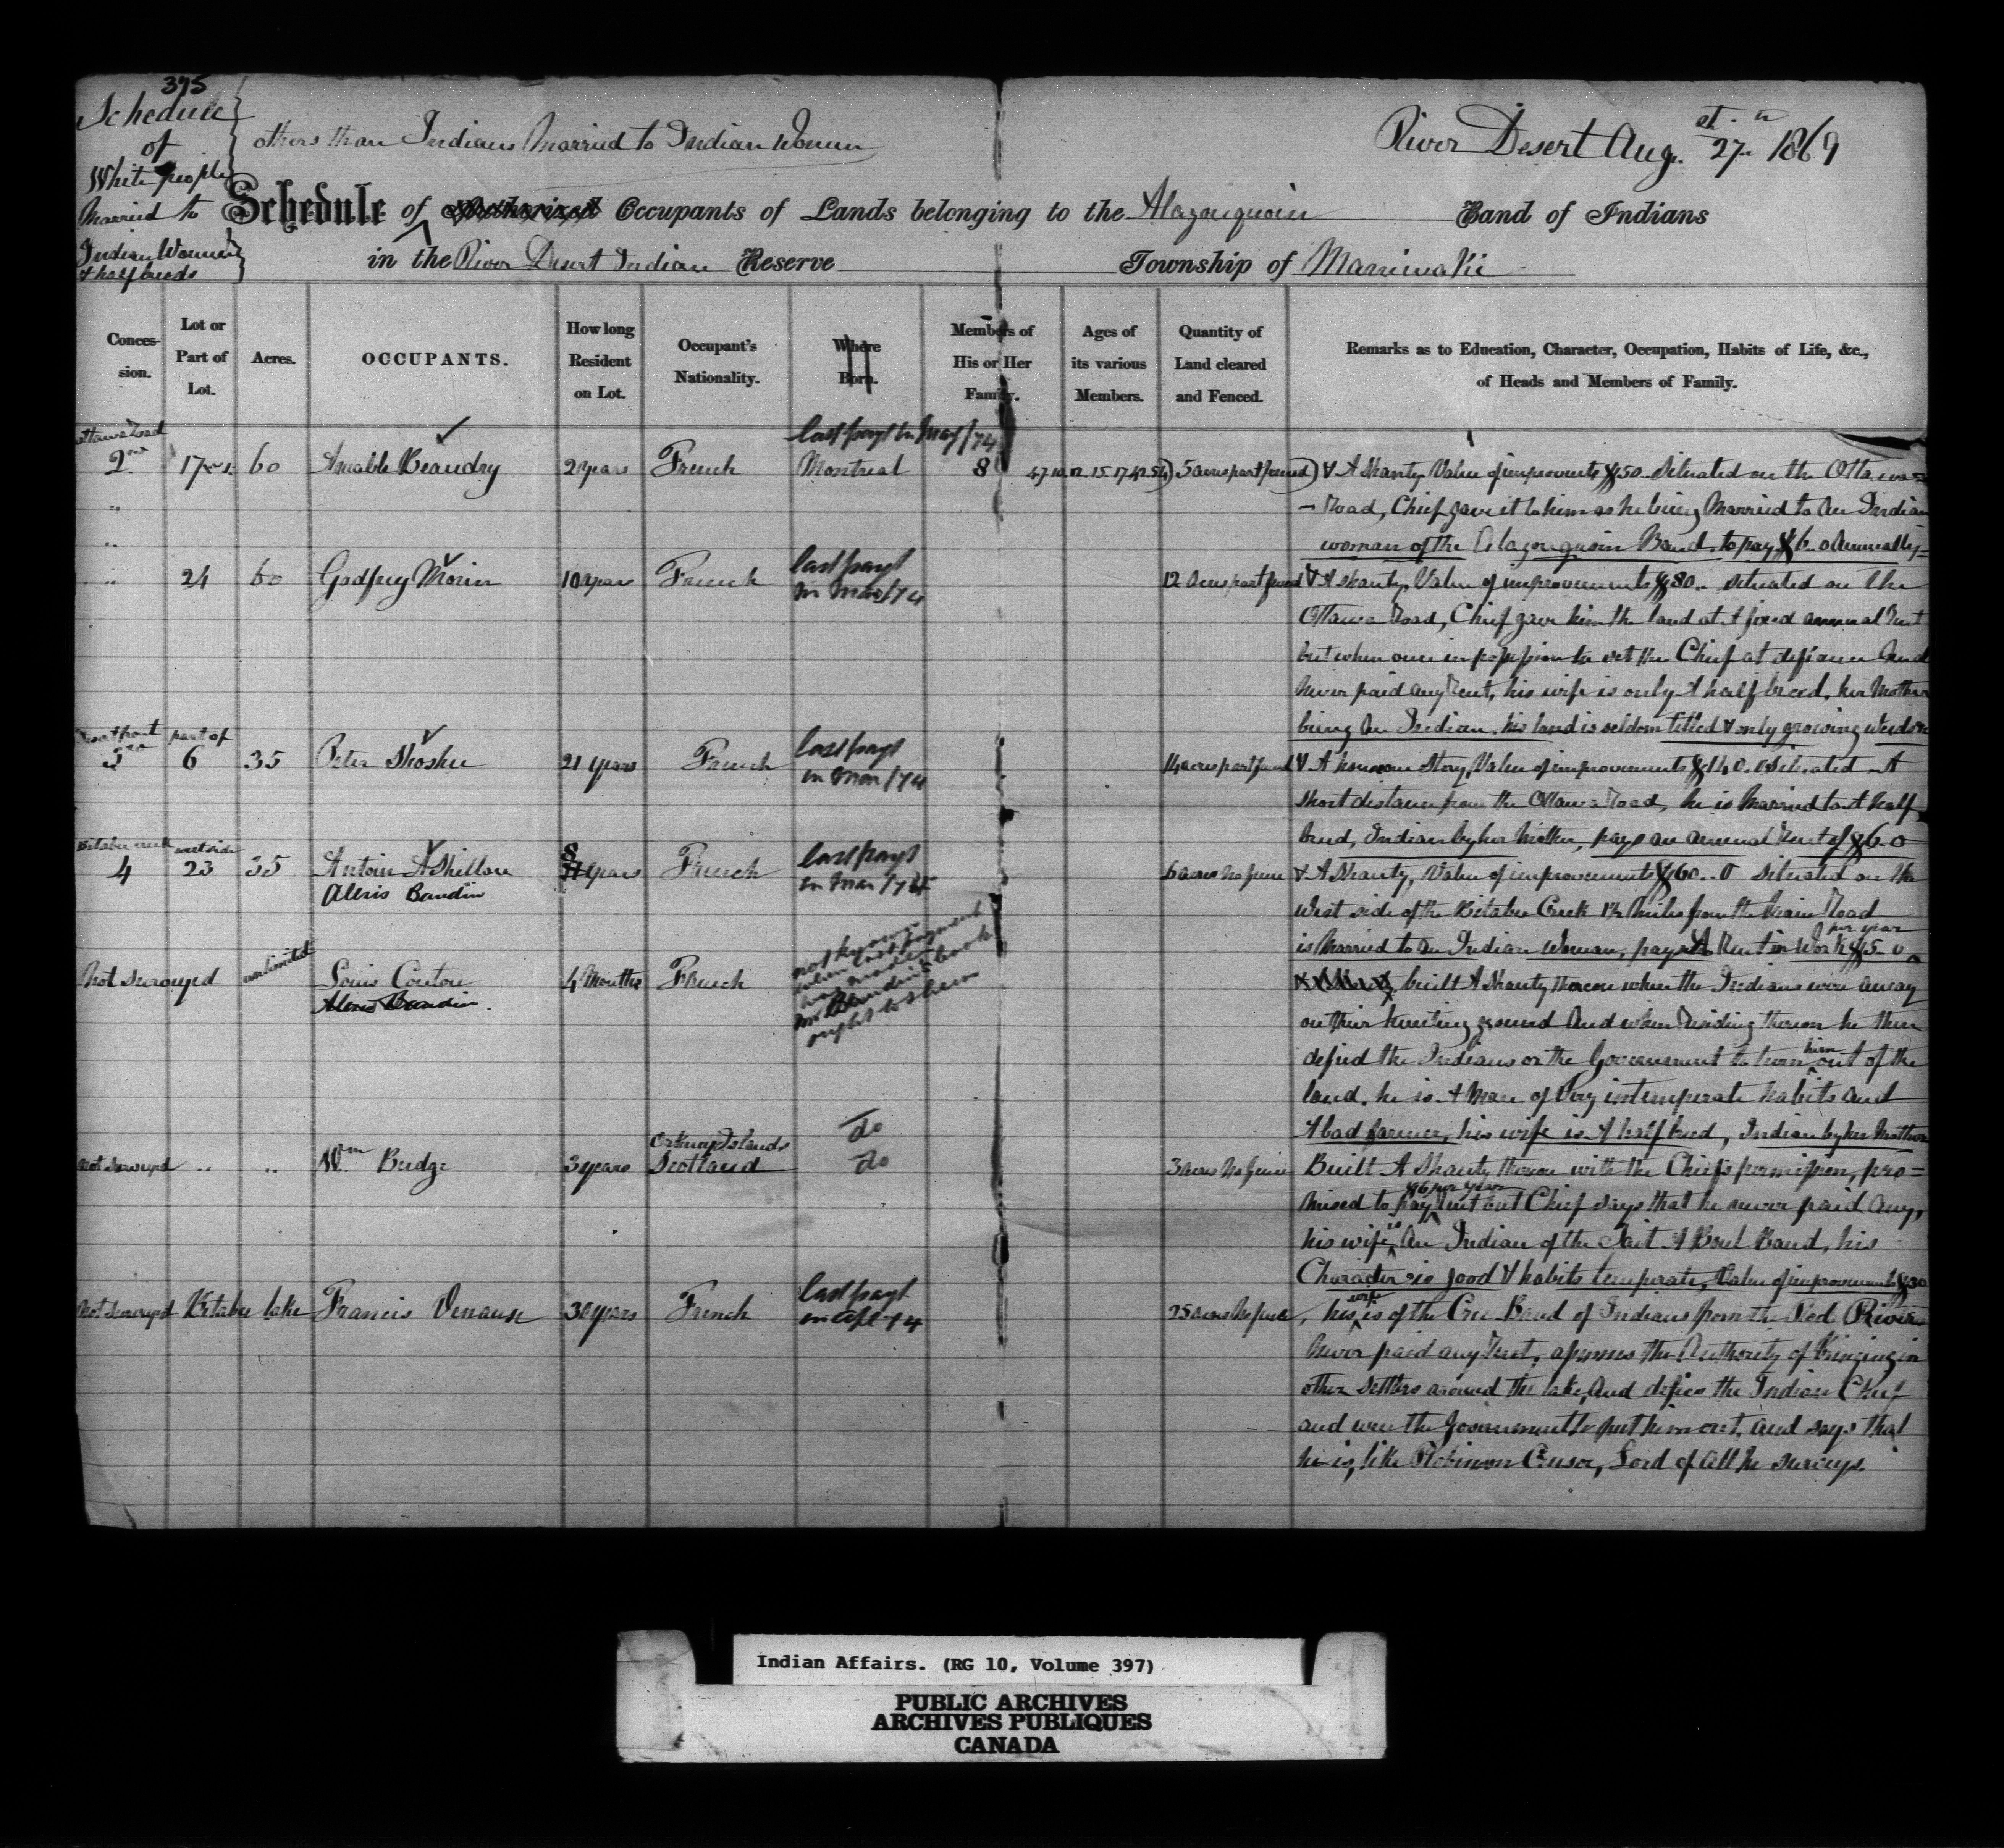 395
Schedule
of
White people
Married to
Indian Women
& half breeds
others than Indians Married to Indian Women
River Desert Aug. 27th 1869
Schedule of Authorized Occupants of Lands belonging to the Alagonquoin Band of Indians
in the River Desert Indian Reserve Township of Maniwaki
Conces-sion.
Lot or Part of Lot.
Acres.
OCCUPANTS.
How long Resident on Lot.
Occupant's Nationality.
Where Born.
Members of His or Her Family.
Ages of its various Members.
Quantity of Land cleared and Fenced.
Remarks as to Education, Character, Occupation, Habits of Life, &c., of Heads and Members of Family.
last payt in May/74
Ottawa Road
2nd 60 Amable Beaudry 2 years French Montreal 8 5 acres part fenced & A Shanty Value of improvements $50 Situated on the Ottawa
Road, Chief gave it to him as he being Married to An Indian
woman of the Alagonquoin Band, to pay $6..0 Annually
last payt
" 24 60 Godfrey Morin 10 years French in Mar/74 12 Acres part fenced & A Shanty, Value of improvements $80.. situated on the
Ottawa Road, Chief gave him the land at A fixed annual Rent
but when once in possession he set the Chief at defiance And
Never paid any Rent, his wife is only A half breed, her Mother
being An Indian. his land is seldom tilled & only growing Weeds
Desert front part of last payt
3rd 6 35 Peter Shoshee 21 years French in Mar/74 14 acres part fenced & A house one Story, Value of improvements $140.0 Situated A
Short distance from the Ottawa Road, he is Married to A half
breed, Indian by her Mother, pays an annual Rent of $6-0
Bitabee creek west side last payt
4 23 35 Antoine Ashillon 8 years French in Mar/74 6 acres No fence & A Shanty, Value of improvements $60..0 Situated on the
Alexis Baudin
West side of the Bitabee Creek 1½ Miles from the Main Road
per year
is Married to An Indian Woman, pays A Rent in Work $5-0
Not Surveyed unlimited Louis Couton 4 Months French
Alexis Baudin
not known
when last payment
was made
Mr Baudin's book
ought to shew
built A Shanty thereon when the Indians were away
on their hunting ground And when Residing thereon he then
defied the Indians or the Government to turn him out of the
land. he is A Man of Very intemperate habits and
A bad farmer, his wife is A half breed, Indian by her Mother
Orkney Islands do
Not Surveyed .. .. Wm Budge 3 years Scotland do 3 acres No fence Built A Shanty thereon with the Chief's permission, pro=
mised to pay $6 per year Rent but Chief says that he never paid any,
his wife is An Indian of the Tait A Boul Band, his
Character is good & habits temperate, Value of improvements $30
last payt
Not Surveyed Bitabee lake Francis Venause 30 years French in Apl 74 25 acres No fence, his wife is of the Cree Band of Indians from the Red River
Never paid any Rent, assumes the Authority of bringing in
other Settlers around the lake, And defies the Indian Chief
and even the Government to put him out, and says that
he is, like Robinson Crusoe, Lord of All he surveys.
Indian Affairs. (RG 10, Volume 397)
PUBLIC ARCHIVES
ARCHIVES PUBLIQUES
CANADA